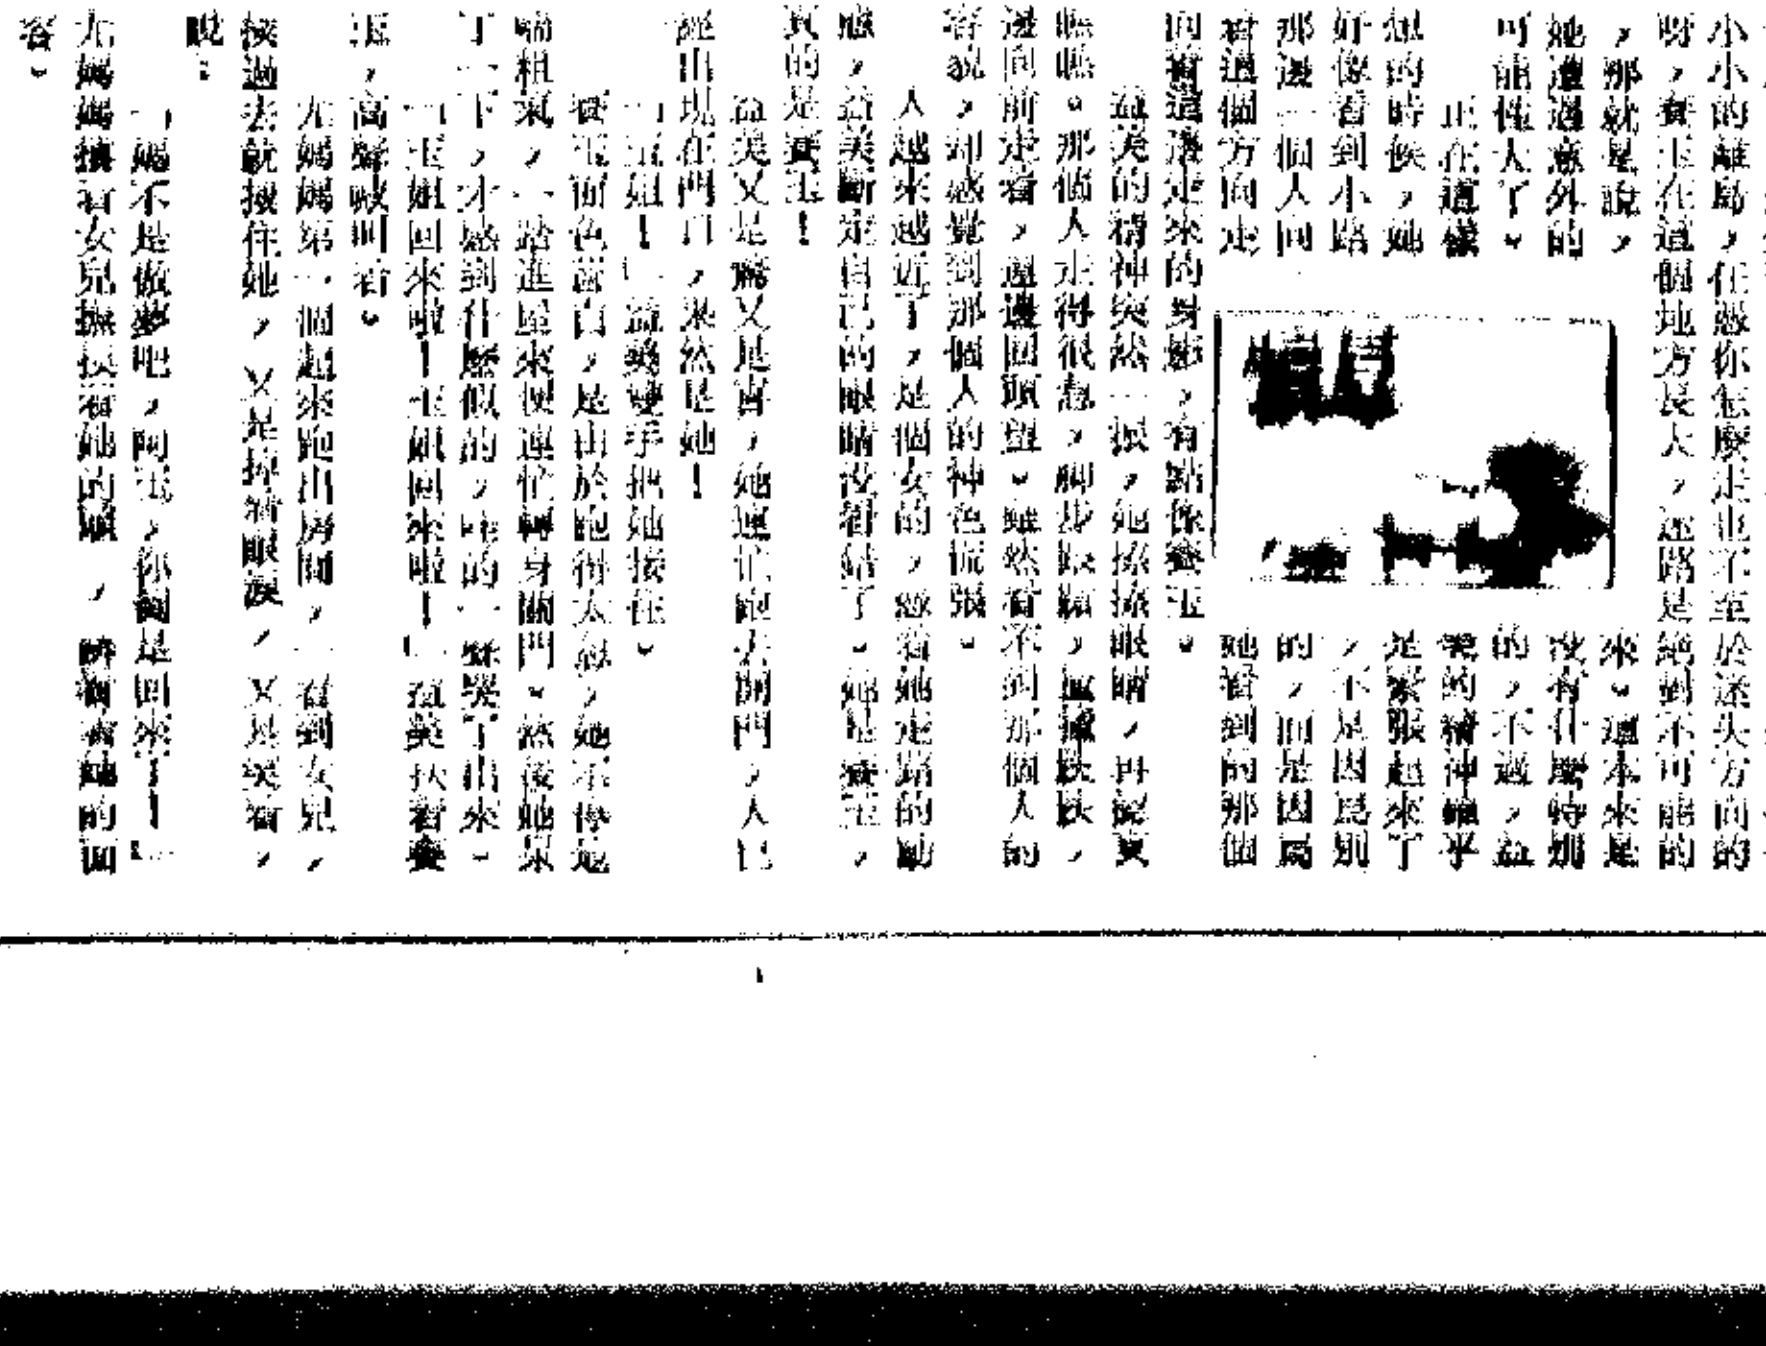 小小的離島，任憑你怎麼走也不至於迷失方向的
呀，賽玉在這個地方長大，迷路是絕對不可能的
，那就是說，
她遭遇意外的
可能性大了。
正在這樣
想的時候，她
好像看到小路
那邊一個人向
着這個方向走
來。這本來是
沒有什麼特別
的，不過，益
美的精神幾乎
是緊張起來了
，不是因爲別
的，而是因爲
她看到的那個
向着這邊走來的身影，有點像賽玉。
益美的精神突然一振，她擦擦眼睛，再
瞧瞧。那個人走得很急，脚步，
邊向前走着，還邊回頭望。雖然看不到那個人的
容貌，却感覺到那個人的神色慌張。
人越來越近了，是個女的，憑着她走路的動
態，益美斷定自己的眼睛沒看錯了。她是賽玉，
真的是賽玉！
益美又是驚又是喜，她連忙跑去開門，人已
經出現在門口，果然是她！
「玉姐！」益美雙手把她接住。
賽玉面色蒼白，是由於跑得太急，她不停地
喘粗氣，一踏進屋來便連忙轉身關門。然後她呆
了一下，才感到什麼似的，哇的一聲哭了出來。
「玉姐回來啦！玉姐回來啦！」益美扶着賽
玉，高聲喊叫着。
尤媽媽第一個起來跑出房間，一看到女兒，
挨過去就摟住她，又是掉着眼淚，又是笑着，
說：
「媽不是做夢吧，阿玉，你倒是回來了！」
尤媽媽摟着女兒撫摸着她的頭，瞧着她的面
容。